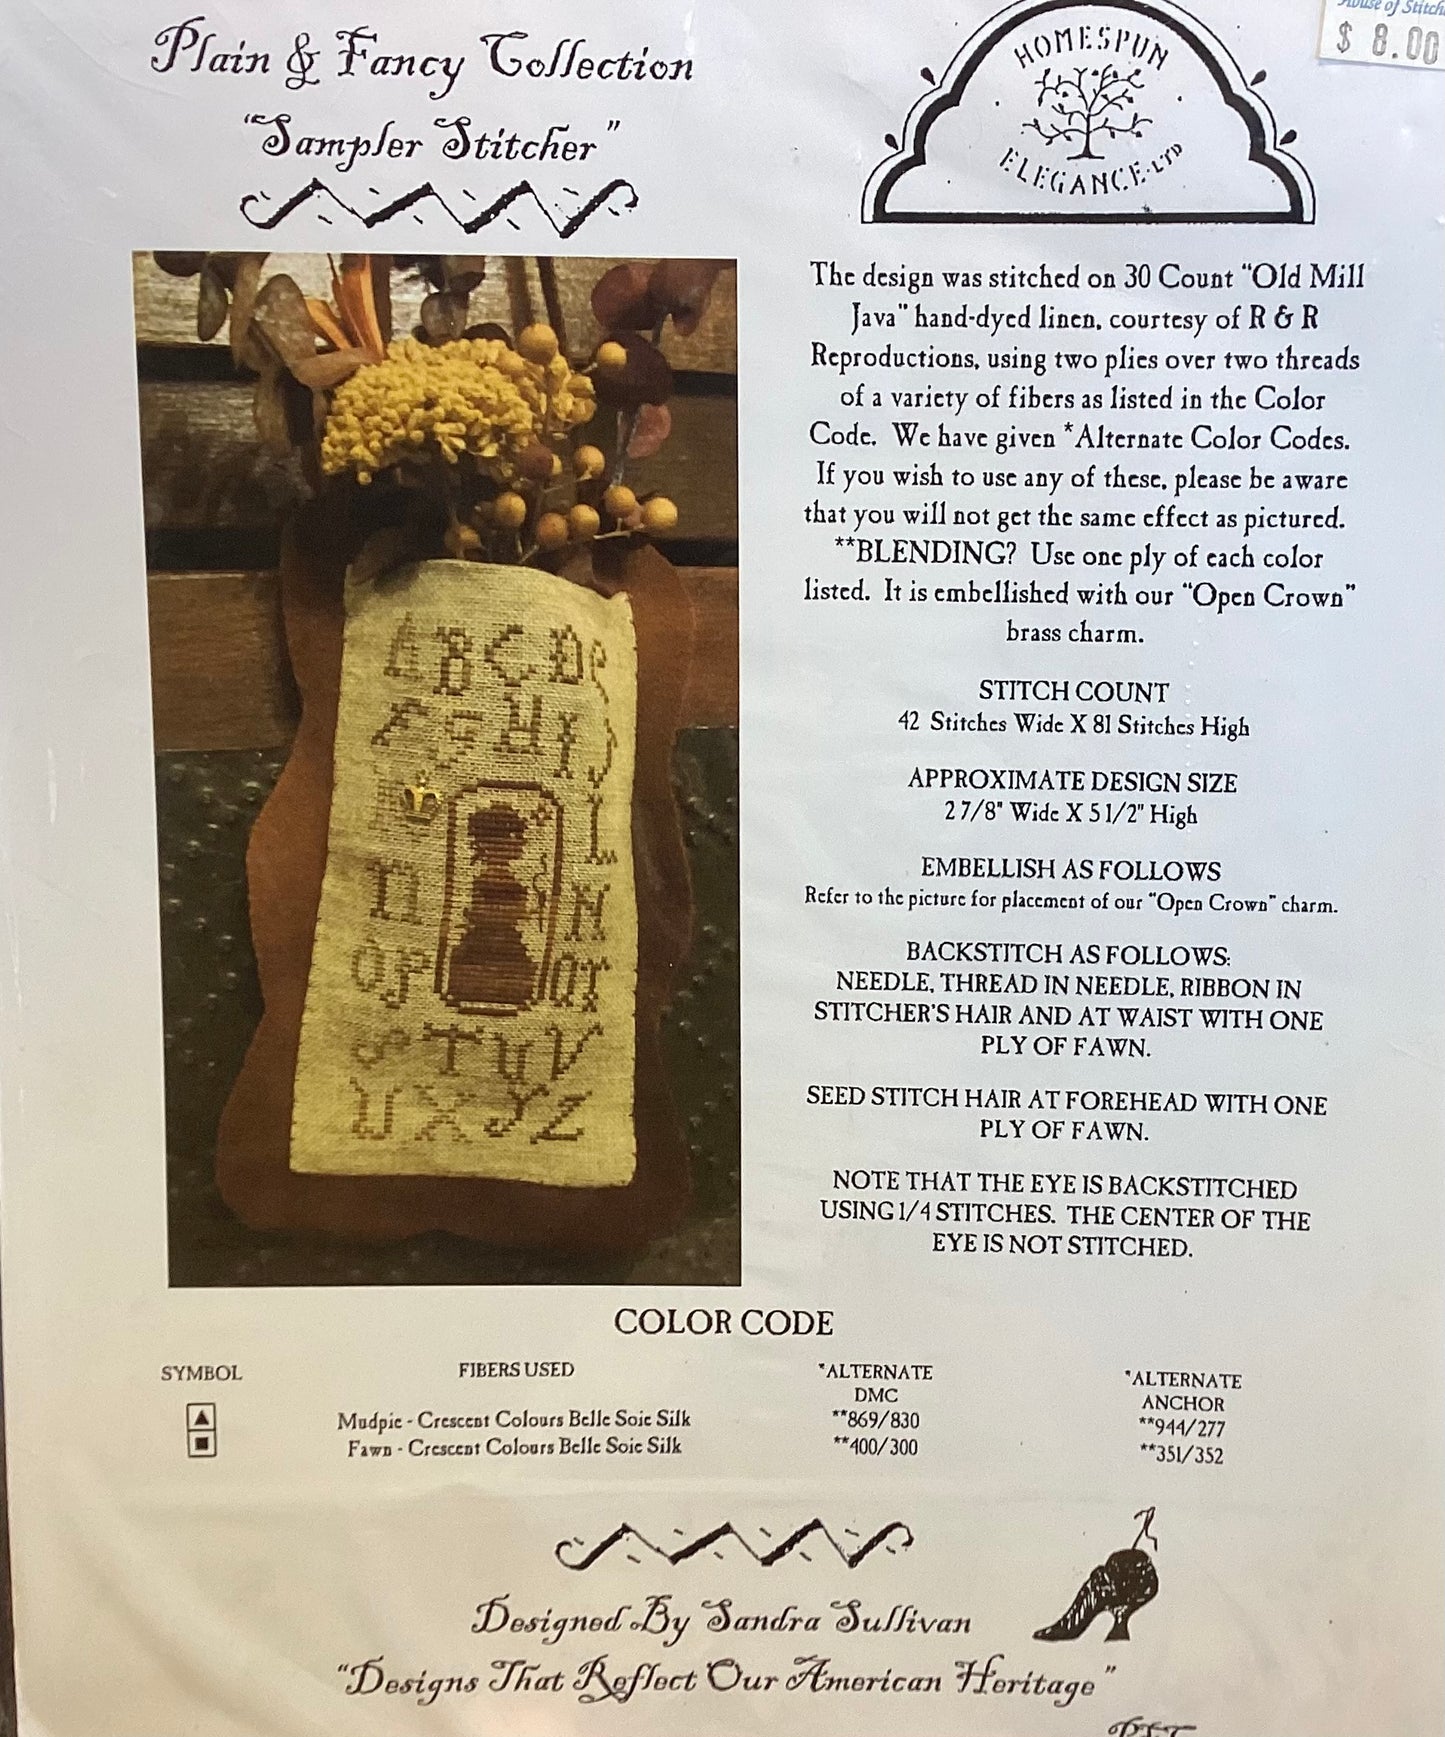 Plain & Fancy Collection
"Sampler Stitcher"
House of Stitch
$ 8.00
HOMESPUN
ELEGANCE·LTD
The design was stitched on 30 Count "Old Mill
Java" hand-dyed linen, courtesy of R & R
Reproductions, using two plies over two threads
of a variety of fibers as listed in the Color
Code. We have given *Alternate Color Codes.
If you wish to use any of these, please be aware
that you will not get the same effect as pictured.
**BLENDING? Use one ply of each color
listed. It is embellished with our "Open Crown"
brass charm.
STITCH COUNT
42 Stitches Wide X 81 Stitches High
APPROXIMATE DESIGN SIZE
2 7/8" Wide X 5 1/2" High
EMBELLISH AS FOLLOWS
Refer to the picture for placement of our "Open Crown" charm.
BACKSTITCH AS FOLLOWS:
NEEDLE, THREAD IN NEEDLE, RIBBON IN
STITCHER'S HAIR AND AT WAIST WITH ONE
PLY OF FAWN.
SEED STITCH HAIR AT FOREHEAD WITH ONE
PLY OF FAWN.
NOTE THAT THE EYE IS BACKSTITCHED
USING 1/4 STITCHES. THE CENTER OF THE
EYE IS NOT STITCHED.
A B C D e
F G H I J
K L
M N
O P Q R
S T U V
W X Y Z
COLOR CODE
SYMBOL FIBERS USED *ALTERNATE DMC *ALTERNATE ANCHOR
▲ Mudpie - Crescent Colours Belle Soie Silk **869/830 **944/277
■ Fawn - Crescent Colours Belle Soie Silk **400/300 **351/352
Designed By Sandra Sullivan
"Designs That Reflect Our American Heritage"